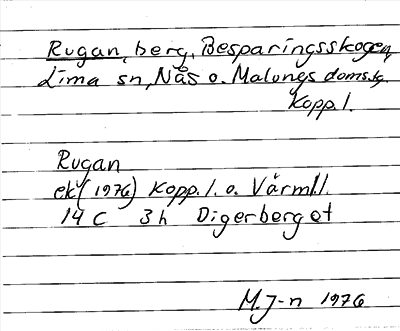 Rugan, berg, Besparingsskogen,
Lima sn, Nås o. Malungs doms.g.
Kopp. l.
Rugan
ek (1976) Kopp. l. o. Värml. l.
14 C 3h Digerberget
M. J-n 1976